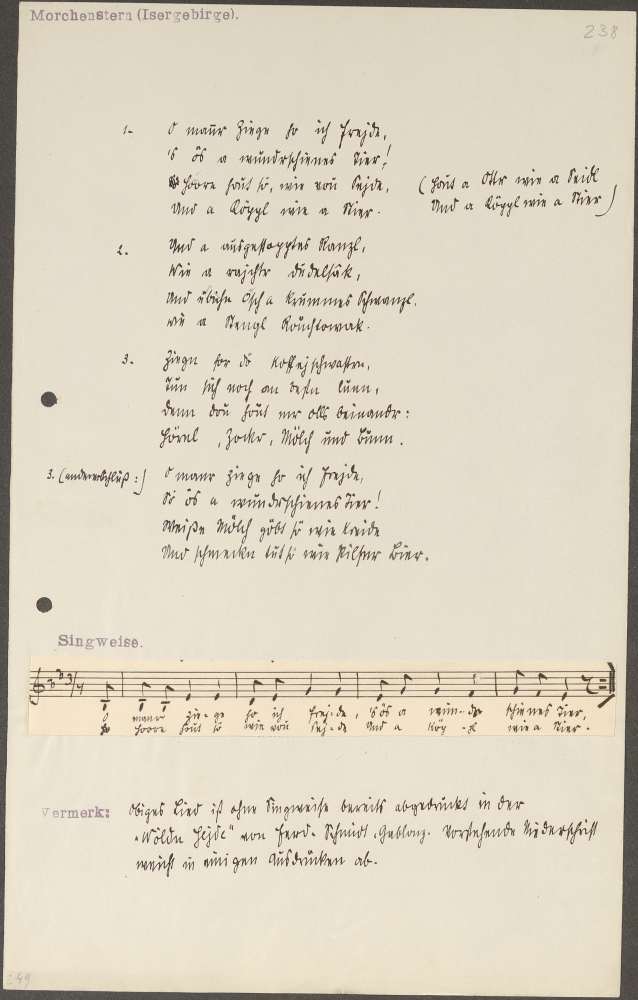 Morchenstern (Isergebirge).
238
1. O maur Ziege ho ich Frejde,
's ös a wundrschienes Tier!
Hoore hout sö, wie vou Sejde, (Hout a Ottr wie a Seidl
Und a Köppl wie a Stier. Und a Köppl wie a Stier)
2. Und a ausgestopptes Ranzl,
Wie a rajchtr Dudelsak,
Und übichn Osch a krummes Schwanzl.
wie a Stengl Rouchtowak.
3. Ziegn for de Koffejschwastrn,
Tun sich noch am bestn luen,
Denn dou hout mr olls beinandr:
Hörnl, Zockr, Mölch und Bunn.
3. (andererSchluß:) O maur Ziege ho ich Frejde,
Sö ös a wundrschienes Tier!
Weiße Mölch göbt sö wie Kreide
Und schmeckn tut sö wie Pilsnr Bier.
Singweise.
O maur Zie-ge ho ich Frej-de, 's ös a wun-dr schienes Tier,
Hoore hout sö wie vou Sej-de Und a Köp-pl wie a Stier.
Vermerk: Obiges Lied ist ohne Singweise bereits abgedruckt in der
"Wöldn Hejde" von Ferd. Schmidt, Gablonz. Vorstehende Niederschrift
weicht in einigen Ausdrücken ab.